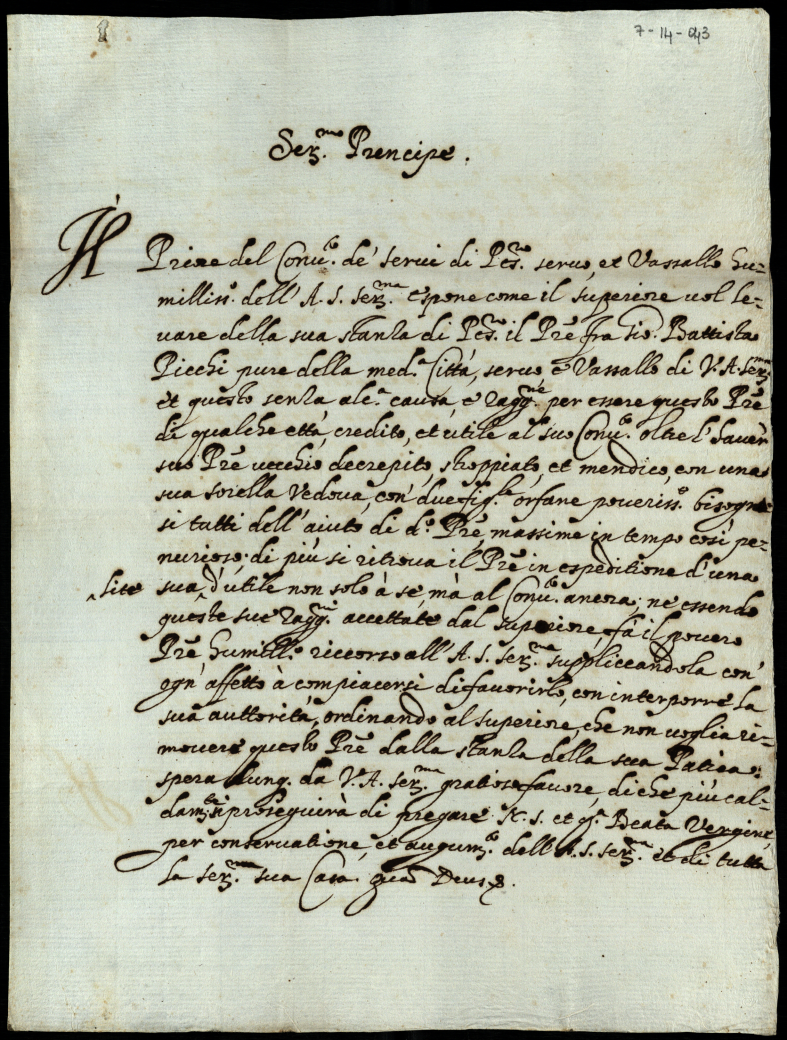 7-14-043
Ser.mo Prencipe.
Il Priore del Conv.to de' servi di Pes.ro servo, et Vassallo hu=
milliss.o dell'A. S. Ser.ma espone come il superiore vol le=
vare della sua stanza di Pes.ro il Prē fra Gio. Battista
Picchi pure della med.a Città, servo e Vassallo di V. A. Ser.ma
et questo senza alc.a causa, e ragg.ne per essere questo Prē
di qualche età, credito, et utile al suo Conv.to oltre l'haver
suo Prē vecchio decrepito, stroppiato, et mendico, con una
sua sorella Vedova, con due fig.le orfane poveriss.e bisogno=
si tutti dell'aiuto di d.o Prē, massime in tempo così pe=
nurioso; di più si ritrova il Prē in espeditione d'una
sua ^lite, d'utile non solo à se, mà al Conv.to ancora; nè essendo
queste sue ragg.ni accettate dal superiore, fà il povero
Prē humill.o riccorso all'A. S. Ser.ma suppliccandola con
ogn'affetto à compiacersi di favorirlo, con interporre la
sua auttorità, ordinando al superiore, che non voglia ri=
movere questo Prē dalla stanza della sua Patria:
spera dunq. da V. A. Ser.ma gratioso favore, di che più cal=
dam.te si proseguirà di pregare N. S. et q.a Beata Vergine,
per conservatione, et augum.to dell'A. S. Ser.ma et di tutta
la Ser.ma sua Casa. quā Deus &.